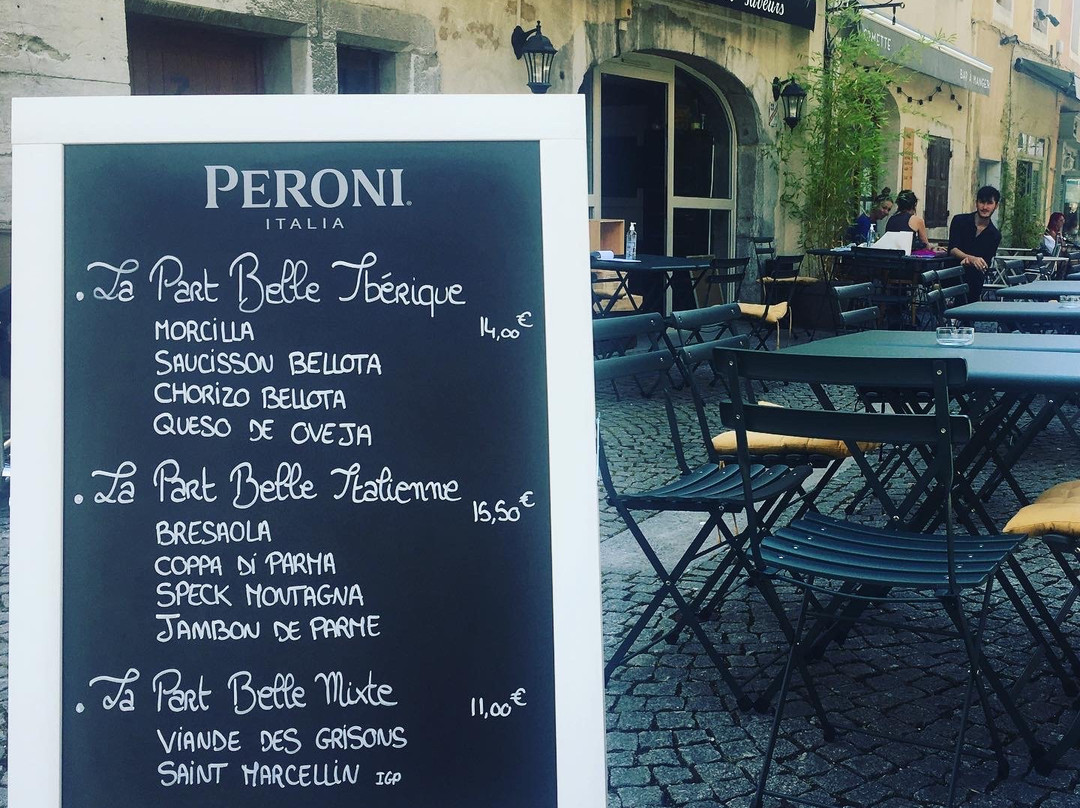 PERONI
ITALIA
. La Part Belle Ibérique
MORCILLA 14,00€
SAUCISSON BELLOTA
CHORIZO BELLOTA
QUESO DE OVEJA
. La Part Belle Italienne
15,50€
BRESAOLA
COPPA DI PARMA
SPECK MONTAGNA
JAMBON DE PARME
. La Part Belle Mixte 11,00€
VIANDE DES GRISONS
SAINT MARCELLIN IGP
BAR À MANGER